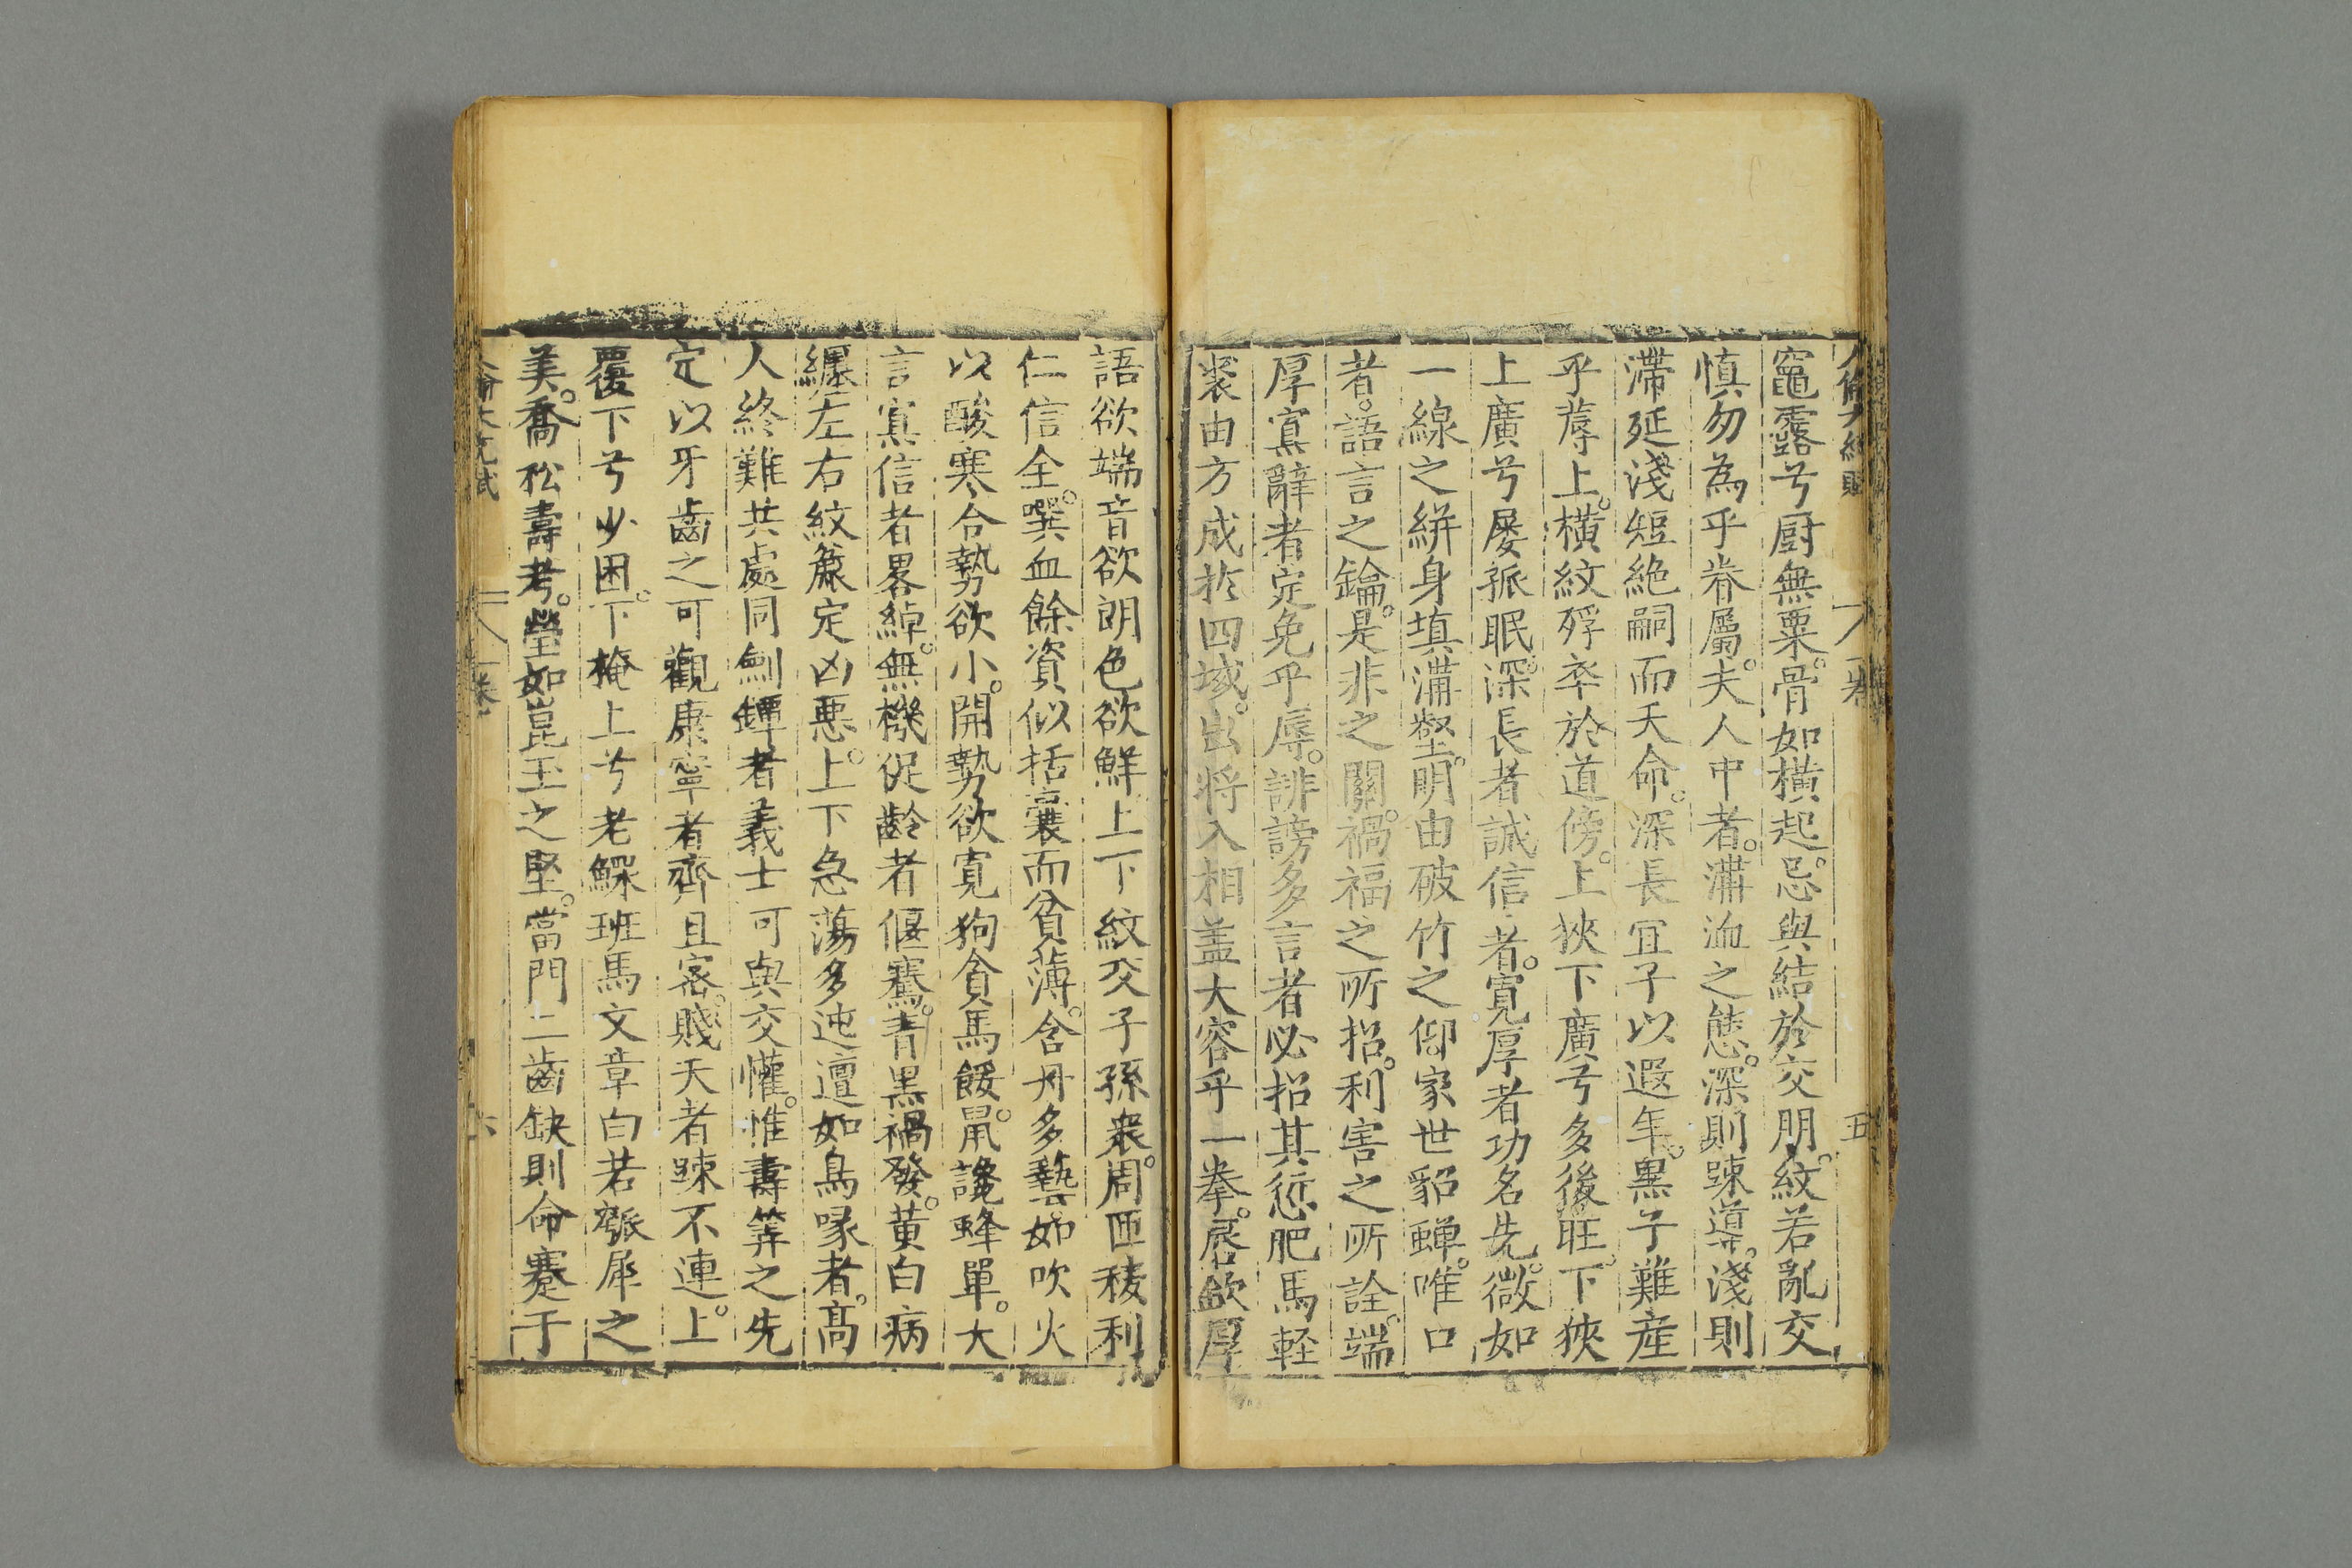 竈露兮厨無粟骨如橫起忌與結於交朋紋若亂交
慎勿為乎眷屬夫人中者溝洫之態深則踈導淺則
滯延淺短絶嗣而夭命深長宜子以遐年黒子難産
乎蓐上橫紋殍卒於道傍上狹下廣兮多後旺下狹
上廣兮屡孤眠深長者誠信者寛厚者功名先微如
一線之絣身填溝壑明由破竹之仰家世貂蟬唯口
者語言之鑰是非之關禍福之所招利害之所詮端
厚寡辭者定免乎辱誹謗多言者必招其愆肥馬軽
裘由方成扵四域出將入相盖大容乎一拳唇欲厚
語欲端音欲朗色欲鮮上下紋交子孫衆周匝稜利
仁信全噀血餘資似括囊而貧薄含丹多藝如吹火
以酸寒合勢欲小開勢欲寛狗貪馬餒鼠讒蜂單大
言寡信者畧綽無機促齡者偃騫青黒禍發黄白病
纒左右紋麄定凶惡上下急蕩多迍邅如鳥喙者髙
人終難共處同劍鐔者義士可與交懽惟壽筭之先
定以牙齒之可觀康寧者齊且密賤夭者踈不連上
覆下兮少困下掩上兮老鰥班馬文章白若瓠犀之
美喬松壽考瑩如崑玉之堅當門二齒缺則命蹇于